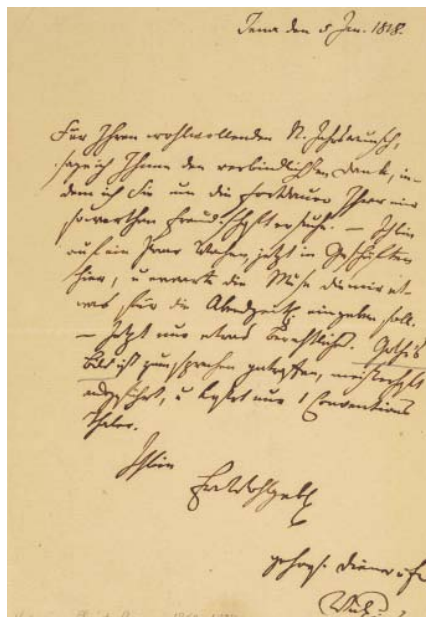 Jena den 5 Jan. 1818.
Für Ihren wohlwollenden N. Jahrswunsch,
sage ich Ihnen den verbindlichsten Dank, in-
dem ich Sie um die fortdauer Ihrer mir
so werthen Freundschaft ersuche. — Ich bin
auf ein Paar Wochen jetzt in Geschäften
hier, u erwarte die Muse die mir et-
was für die Abendzeit. eingeben soll.
— Jetzt nur etwas Göthe's
Bild ist zum sprechen getroffen, meisterhaft
ausgeführt, u kostet nur 1 Conventions
Thaler.
Ich bin
Ew. Wohlgeb
gehors. Diener u